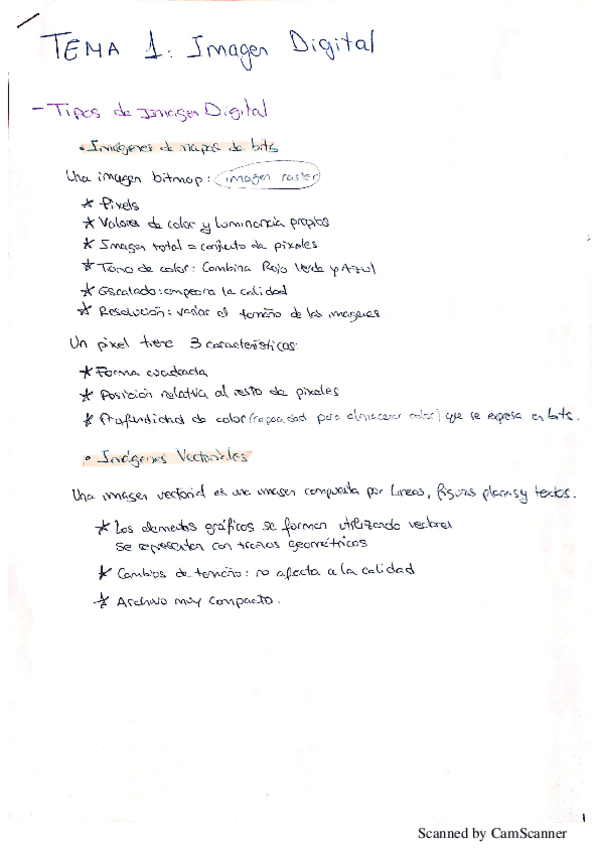 TEMA 1: Imagen Digital
- Tipos de Imagen Digital
• Imágenes de mapas de bits
Una imagen bitmap: imagen raster
* Pixels
* Valores de color y luminancia propios
* Imagen total = conjunto de pixeles
* Tono de color: Combina Rojo Verde y Azul
* Escalado: empeora la calidad
* Resolución: variar el tamaño de las imagenes
Un pixel tiene 3 caracteristicas:
* Forma cuadrada
* Posición relativa al resto de pixeles
* Profundidad de color (capacidad para almacenar color) que se expresa en bits.
• Imágenes Vectoriales
Una imagen vectorial es una imagen compuesta por lineas, figuras planas y textos.
* Los elementos gráficos se forman utilizando vectorial
se representan con trazos geométricos
* Cambios de tamaño: no afecta a la calidad
* Archivo muy compacto.
1
Scanned by CamScanner